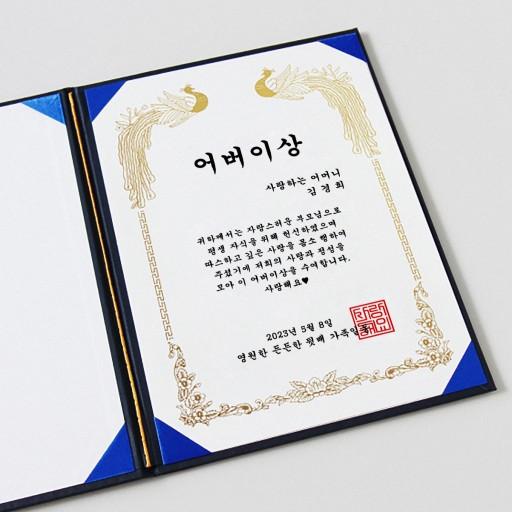 어버이상
사랑하는 어머니
김 경 희
귀하께서는 자랑스러운 부모님으로
평생 자식을 위해 헌신하였으며
따스하고 깊은 사랑을 몸소 행하여
주셨기에 저희의 사랑과 정성을
모아 이 어버이상을 수여합니다.
사랑해요♥
2023년 5월 8일
영원한 든든한 빽빽 가족일동